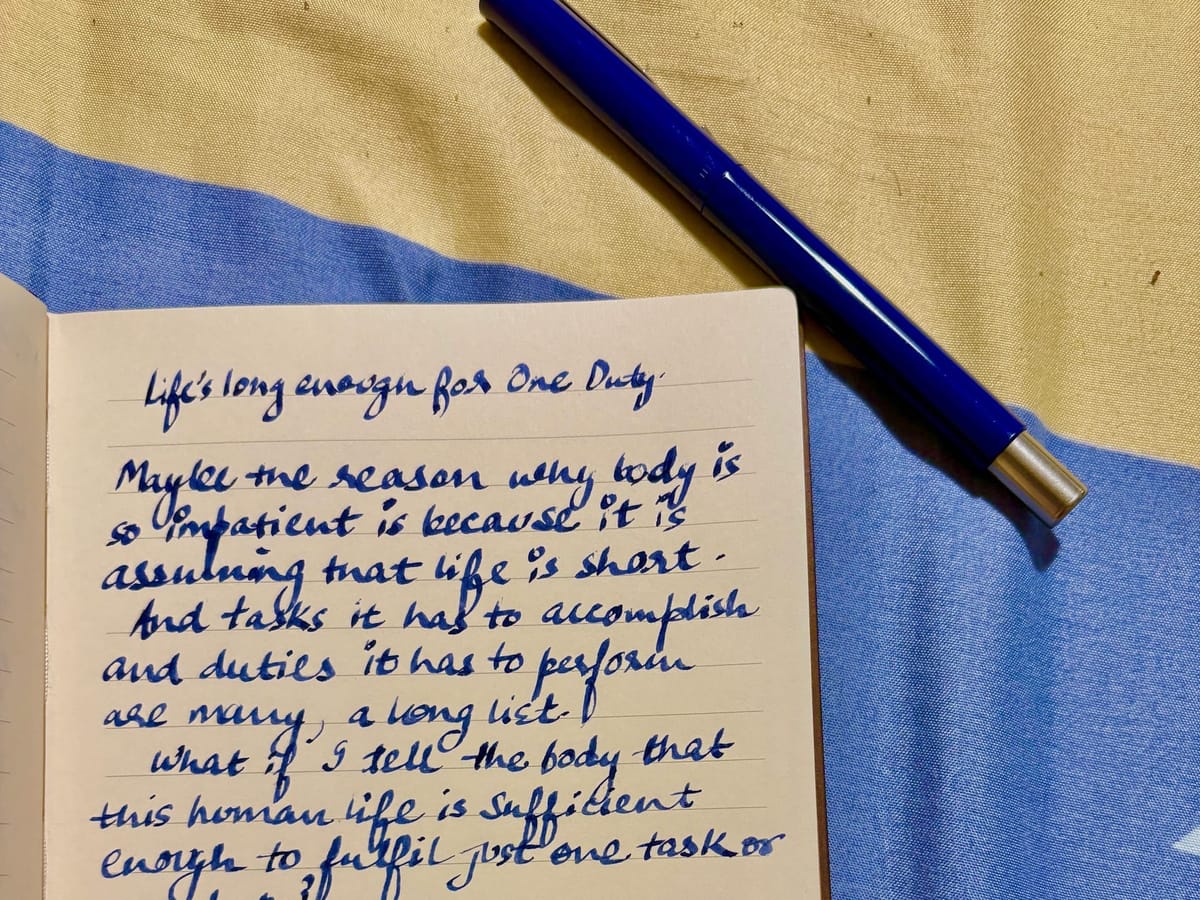 Life's long enough for One Duty.
Maybe the reason why body is
so impatient is because it is
assuming that life is short.
And tasks it has to accomplish
and duties it has to perform
are many, a long list.
What if I tell the body that
this human life is sufficient
enough to fulfil just one task or